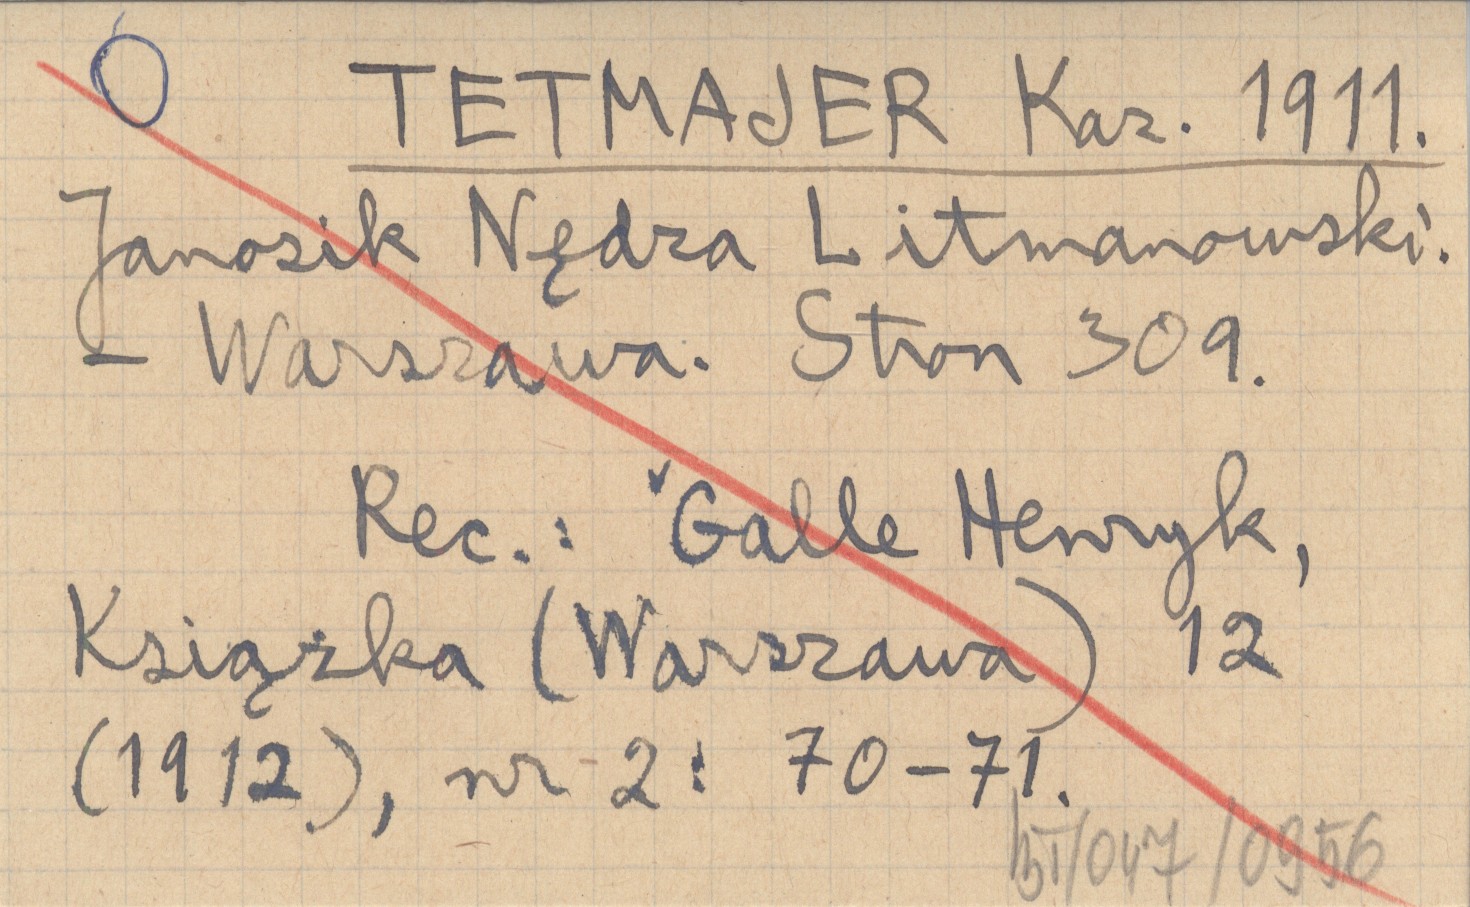 TETMAJER Kaz. 1911.
Janosik Nędza Litmanowski.
– Warszawa. Stron 309.
Rec.: Galle Henryk,
Książka (Warszawa) 12
(1912), nr 2: 70–71.
/047/0956